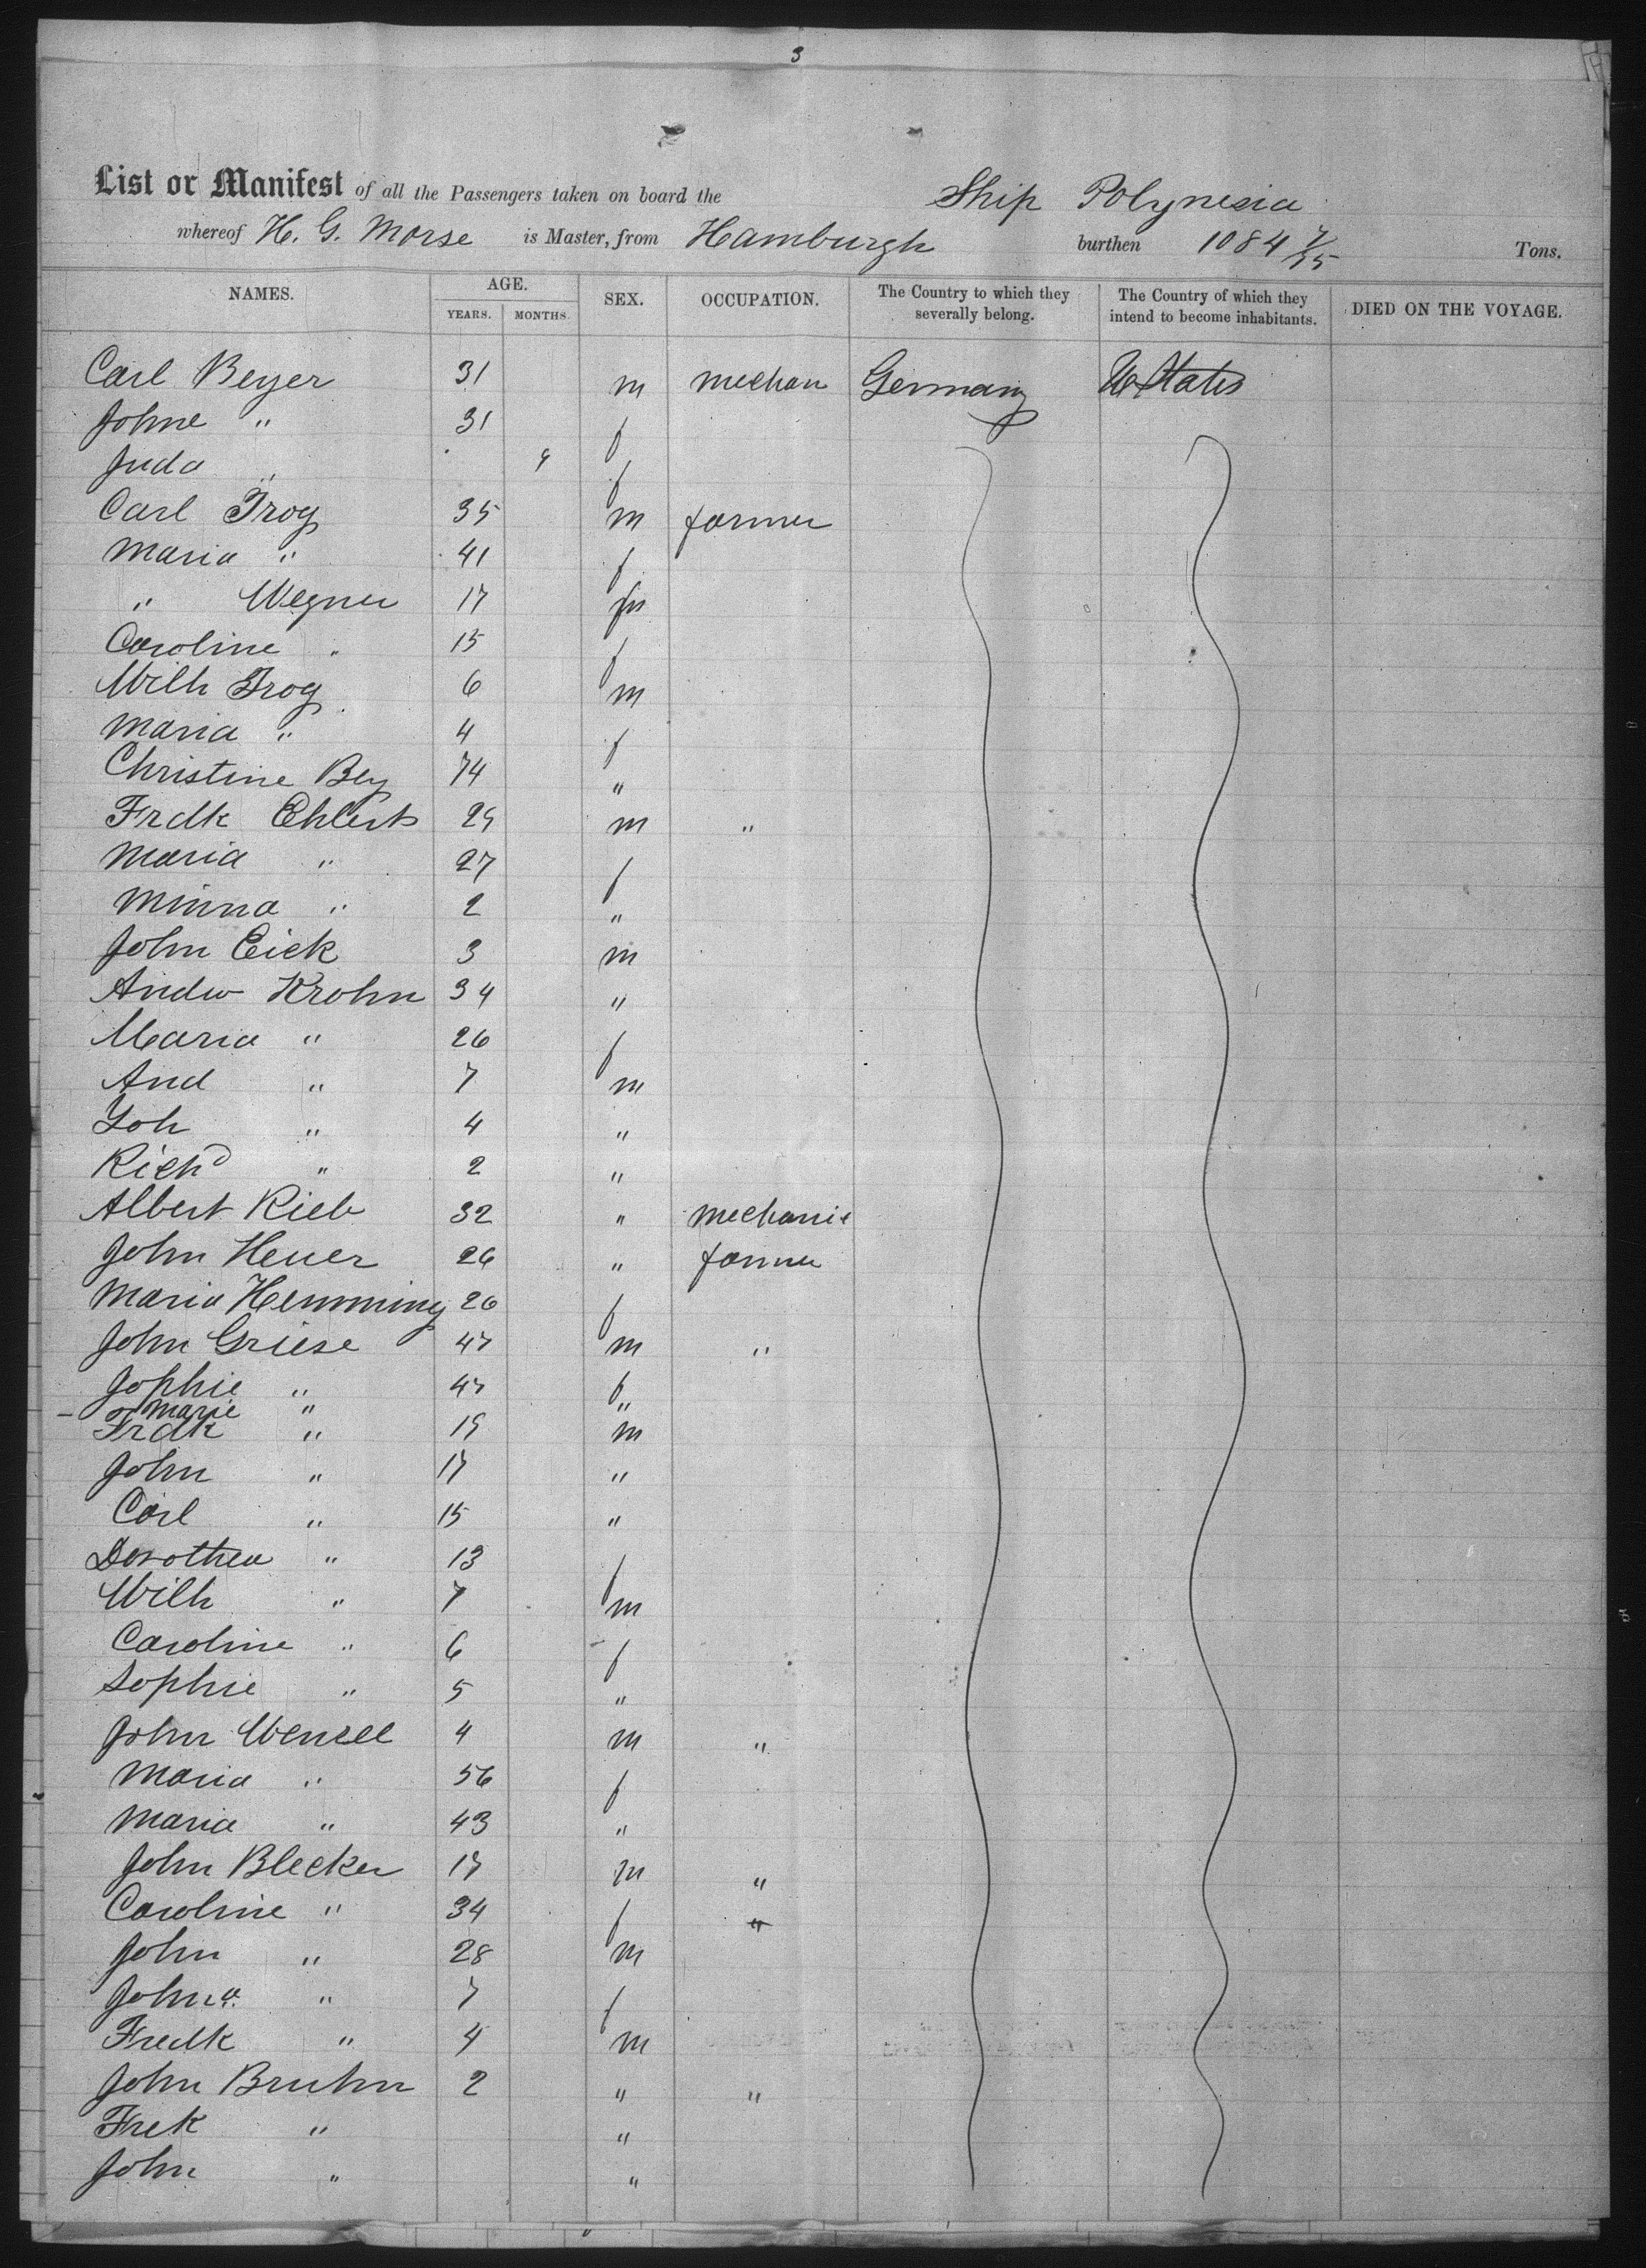 3
List or Manifest of all the Passengers taken on board the Ship Polynesia
whereof H. G. Morse is Master, from Hamburgh burthen 1084 Tons.
NAMES. AGE. YEARS. MONTHS. SEX. OCCUPATION. The Country to which they severally belong. The Country of which they intend to become inhabitants. DIED ON THE VOYAGE.
Carl Beyer 31 m mechan Germany U States
Johne " 31 f
Juda " 9 f
Carl Trog 35 m farmer
Maria " 41 f
" Wegner 17
Caroline " 15 f
Wilh Trog 6 m
Maria " 4 f
Christine Bey 74 "
Frdk Ehlert 29 m "
Maria " 27 f
Minna " 2 "
John Eick 3 m
Andw Krohn 34 "
Maria " 26 f
And " 7 m
Joh " 4 "
Richd " 2 "
Albert Rieb 32 " mechanic
John Heuer 26 " farmer
Maria Hemming 26 f
John Griese 47 m "
Sophie " 47 f
Marie " "
Frdk " 19 m
John " 17 "
Carl " 15 "
Dorothea " 13 f
Wilh " 7 m
Caroline " 6 f
Sophie " 5 "
John Wenzel 4 m "
Maria " 56 f
Maria " 43 "
John Blecker 17 m "
Caroline " 34 f "
John " 28 m
Johna " 7 f
Fredk " 4 m
John Bruhn 2 " "
Frek " "
John " "